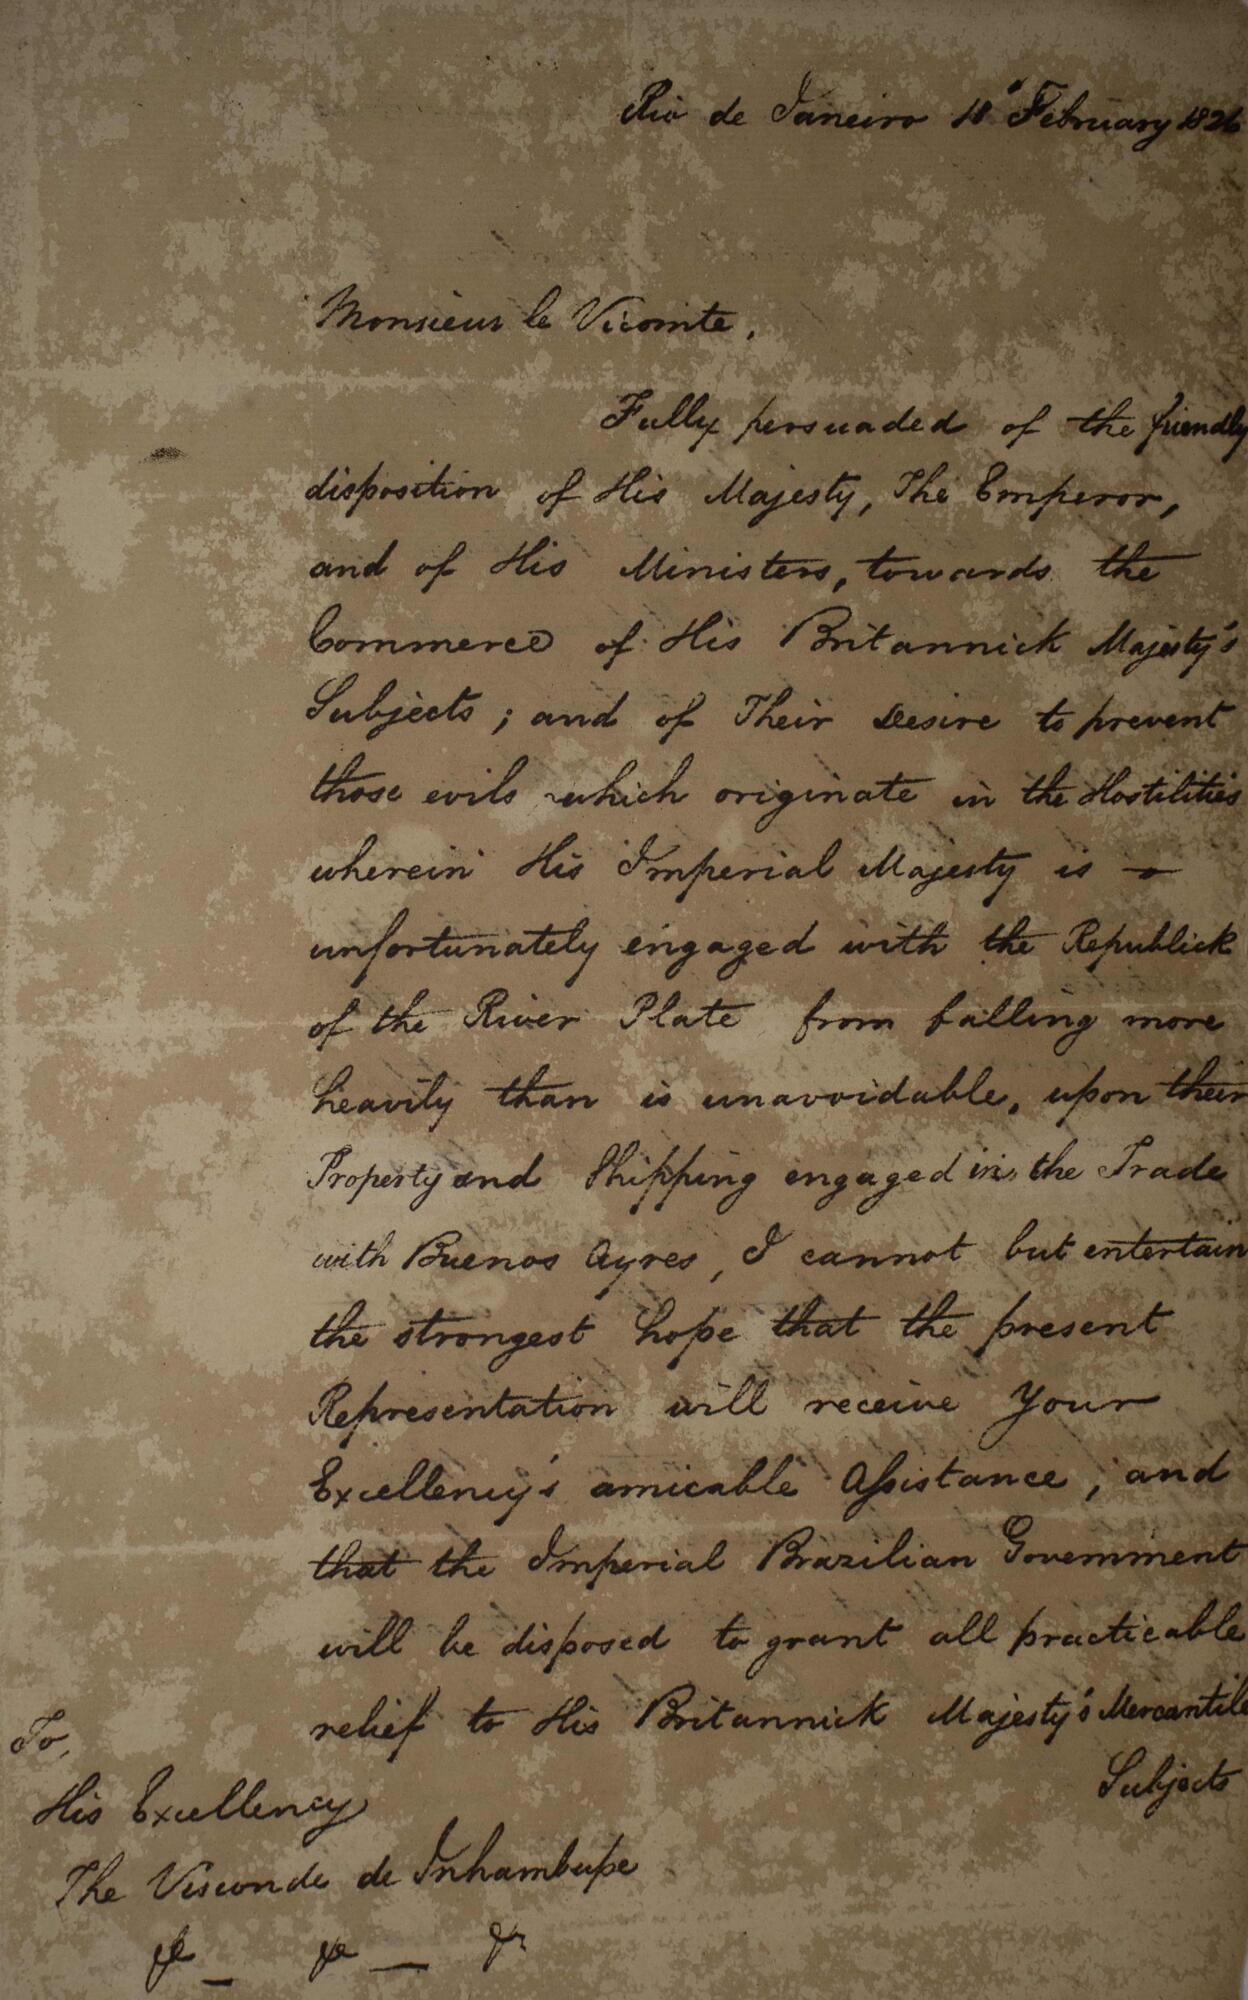 Rio de Janeiro 18 February 1826
Monsieur le Vicomte,
Fully persuaded of the friendly
disposition of His Majesty, The Emperor,
and of His Ministers, towards the
Commerce of His Britannick Majesty's
Subjects; and of Their Desire to prevent
those evils which originate in the Hostilities
wherein His Imperial Majesty is
unfortunately engaged with the Republick
of the River Plate from falling more
heavily than is unavoidable, upon their
Property and Shipping engaged in the Trade
with Buenos Ayres, I cannot but entertain
the strongest hope that the present
Representation will receive Your
Excellency's amicable Assistance; and
that the Imperial Brazilian Government
will be disposed to grant all practicable
relief to His Britannick Majesty's Mercantile
Subjects
To,
His Excellency
The Visconde de Inhambupe
&c — &c — &c